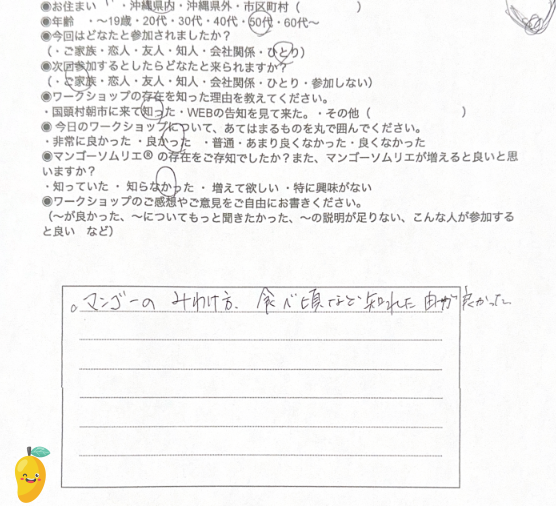 ◉お住まい　・沖縄県内・沖縄県外・市区町村（　　　　　）
◉年齢　・～19歳・20代・30代・40代・50代・60代～
◉今回はどなたと参加されましたか？
（・ご家族・恋人・友人・知人・会社関係・ひとり）
◉次回参加するとしたらどなたと来られますか？
（・ご家族・恋人・友人・知人・会社関係・ひとり・参加しない）
◉ワークショップの存在を知った理由を教えてください。
・国頭村朝市に来て知った・WEBの告知を見て来た。・その他（　　　　　　　　）
◉ 今日のワークショップについて、あてはまるものを丸で囲んでください。
・非常に良かった ・良かった　・普通・あまり良くなかった・良くなかった
◉マンゴーソムリエ® の存在をご存知でしたか？また、マンゴーソムリエが増えると良いと思
いますか？
・知っていた ・ 知らなかった ・ 増えて欲しい ・特に興味がない
◉ワークショップのご感想やご意見をご自由にお書きください。
（～が良かった、～についてもっと聞きたかった、～の説明が足りない、こんな人が参加する
と良い　など）
。マンゴーの みわけ方、食べ頃など 知れた 良かった